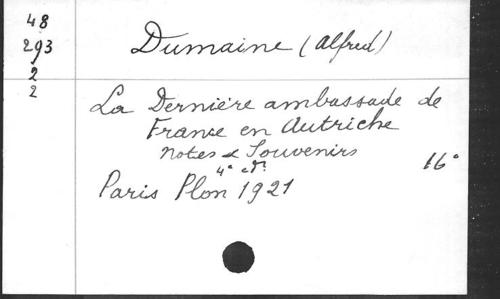 48
293
2
2
Dumaine (Alfred)
La Dernière ambassade de
France en Autriche
Notes & Souvenirs
16°
4e edn
Paris Plon 1921